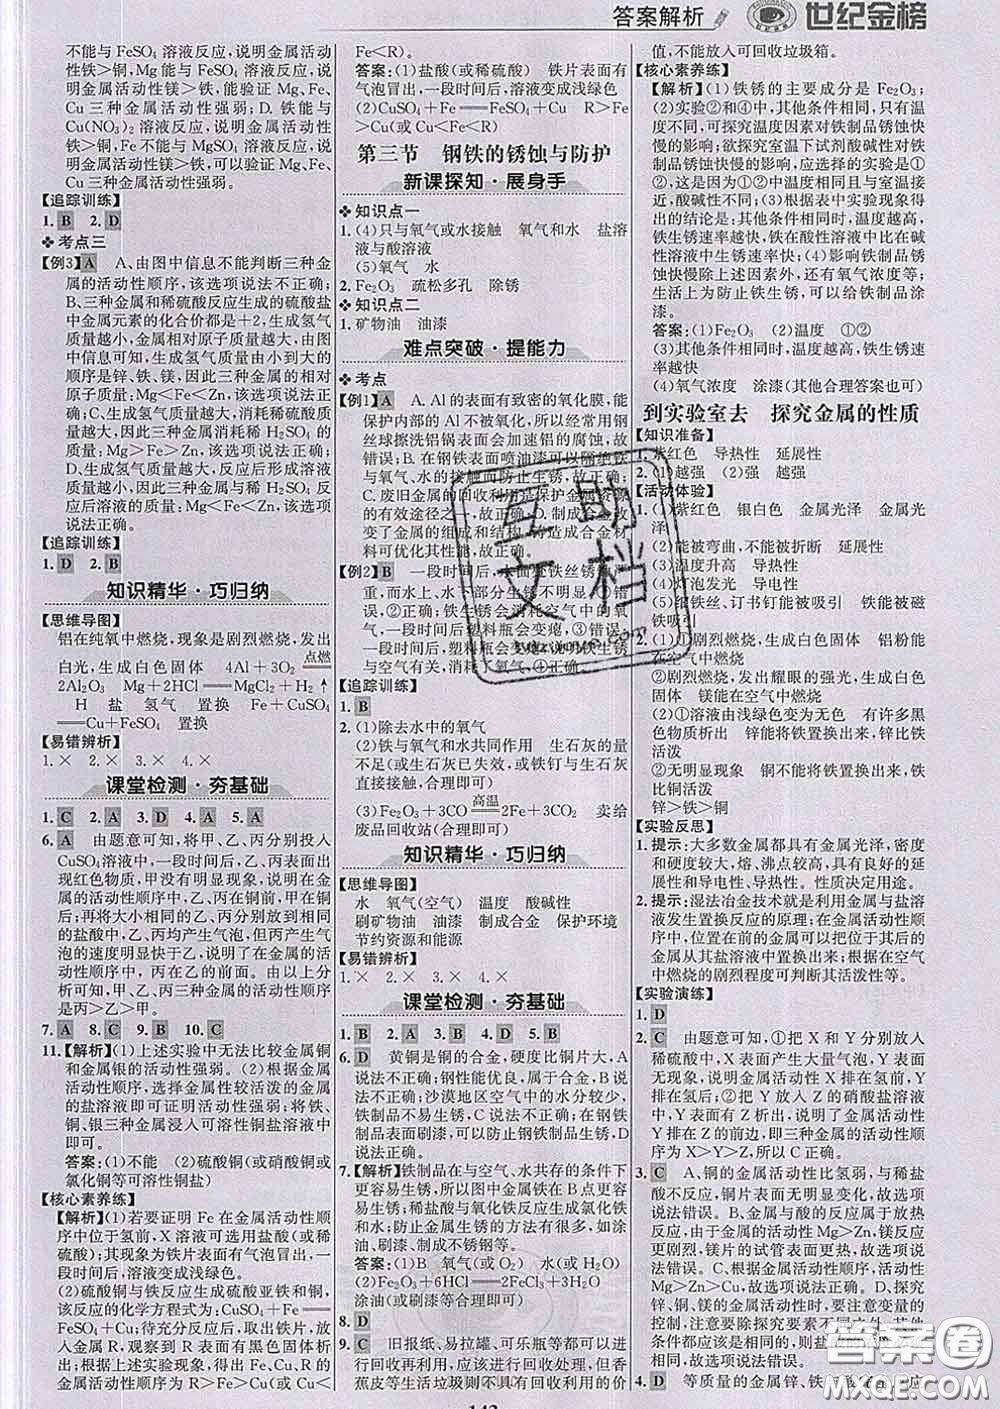 答案解析 世纪金榜
不能与FeSO₄溶液反应,说明金属活动
性铁>铜,Mg能与FeSO₄溶液反应,说
明金属活动性镁>铁,能验证Mg、Fe、
Cu三种金属活动性强弱;D.铁能与
Cu(NO₃)₂溶液反应,说明金属活动性
铁>铜,Fe不能与MgSO₄溶液反应,说
明金属活动性镁>铁,可以验证Mg、Fe、
Cu三种金属活动性强弱。
【追踪训练】
1.B 2.D
考点三
【例3】A A、由图中信息不能判断三种金
属的活动性顺序,该选项说法不正确;
B、三种金属和稀硫酸反应生成的硫酸盐
中金属元素的化合价都是+2,生成氢气
质量越小,金属相对原子质量越大,由图
中信息可知,生成氢气质量由小到大的
顺序是锌、铁、镁,因此三种金属的相对
原子质量:Mg<Fe<Zn,该选项说法正
确;C、生成氢气质量越大,消耗稀硫酸质
量越大,因此三种金属消耗稀H₂SO₄的
质量:Mg>Fe>Zn,该选项说法正确;
D、生成氢气质量越大,反应后形成溶液
的质量越小,因此三种金属与稀H₂SO₄
反应后溶液的质量:Mg<Fe<Zn,该选项
说法正确。
【追踪训练】
1.D 2.B
知识精华·巧归纳
【思维导图】
铝在纯氧中燃烧,现象是剧烈燃烧,发出
白光,生成白色固体 4Al+3O₂ 点燃
2Al₂O₃ Mg+2HCl══MgCl₂+H₂↑
H 盐 氢气 置换 Fe+CuSO₄
══Cu+FeSO₄ 置换
【易错辨析】
1.× 2.× 3.× 4.×
课堂检测·夯基础
1.C 2.A 3.D 4.A 5.A
6.A 由题意可知,将甲、乙、丙分别投入
CuSO₄溶液中,一段时间后,乙、丙表面出
现红色物质,甲没有明显现象,说明了金
属的活动性顺序中,乙、丙在铜前,甲在铜
后;另取大小相等的乙、丙分别投到相同的
稀盐酸中,乙、丙均产生气泡,但丙产生气
泡的速度明显快于乙,说明了在金属的活
动性顺序中,丙在乙的前面。由以上分析
可知,则甲、乙、丙三种金属的活动性顺序
是丙>乙>甲。
7.A 8.C 9.B 10.C
11.【解析】(1)上述实验中无法比较金属铜
和金属银的活动性强弱。(2)根据金属活
动性顺序,选择金属性较活泼的金属
的盐溶液即可证明活动性强弱;将铁、
铜、银三种金属浸入可溶性铜盐溶液中
即可。
答案:(1)不能 (2)硫酸铜(或硝酸铜或
氯化铜等可溶性铜盐)
【核心素养练】
【解析】(1)若要证明Fe在金属活动性顺
序中位于氢前,X溶液可选用盐酸(或稀
硫酸);其现象为铁片表面有气泡冒出,一
段时间后,溶液变成浅绿色。
(2)硫酸铜与铁反应生成硫酸亚铁和铜,
该反应的化学方程式为:CuSO₄+Fe══
FeSO₄+Cu;待充分反应后,取出铁片,放
入金属R,观察到R表面有黑色固体析
出;根据上述实验现象,得出Fe、Cu、R的
金属活动性顺序为R>Fe>Cu(或Cu<
Fe<R)。
答案:(1)盐酸(或稀硫酸) 铁片表面有
气泡冒出,一段时间后,溶液变成浅绿色
(2)CuSO₄+Fe══FeSO₄+Cu R>Fe
>Cu(或Cu<Fe<R)
第三节 钢铁的锈蚀与防护
新课探知·展身手
知识点一
1.(4)只与氧气或水接触 氧气和水 盐溶
液与酸溶液
(5)氧气 水
2.Fe₂O₃ 疏松多孔 除锈
知识点二
1.矿物油 油漆
难点突破·提能力
考点
【例1】A A.Al的表面有致密的氧化膜,能
保护内部的Al不被氧化,所以经常用钢
丝球擦洗铝锅表面会加速铝的腐蚀,故
错误;B.在钢铁表面喷油漆可以隔绝铁
与氧气、水的接触而防止生锈,故正确;
C.废旧金属的回收利用是保护金属资源
的有效途径之一,故正确;D.制成合金改
变了金属的组成和结构,制造成合金材
料可优化其性能,故正确。
【例2】B 一段时间后,水面处铁丝锈蚀严
重,而水上、水下部分生锈不明显,①错误、
②正确;铁生锈会消耗空气中的氧
气,一段时间后塑料瓶会变瘪,③错误、
一段时间后,塑料瓶会变瘪,说明铁生锈
与空气有关,消耗了氧气,④正确。
【追踪训练】
1.B
2.(1)除去水中的氧气
(2)铁与氧气和水共同作用 生石灰的量
不足(或生石灰已失效,或铁钉与生石灰
直接接触,合理即可)
(3)Fe₂O₃+3CO 高温 2Fe+3CO₂ 卖给
废品回收站(合理即可)
知识精华·巧归纳
【思维导图】
水 氧气(空气) 温度 酸碱性
刷矿物油 油漆 制成合金 保护环境
节约资源和能源
【易错辨析】
1.× 2.× 3.× 4.×
课堂检测·夯基础
1.B 2.A 3.B 4.D 5.B
6.D 黄铜是铜的合金,硬度比铜片大,A
说法不正确;钢性能优良,属于合金,B说
法不正确;沙漠地区空气中的水分较少,
铁制品不易生锈,C说法不正确;在钢铁
制品表面刷漆,可以防止钢铁制品生锈,D
说法正确。
7.【解析】铁制品在与空气、水共存的条件下
更容易生锈,所以图中金属铁在B点更容
易生锈;稀盐酸与氧化铁反应生成氯化铁
和水;防止金属生锈的方法有很多,如涂
油、刷漆、制成不锈钢等。
答案:(1)B 氧气(或O₂) 水(或H₂O)
(2)Fe₂O₃+6HCl══2FeCl₃+3H₂O
涂油(或刷漆等合理即可)
8.D
9.C 旧报纸、易拉罐、可乐瓶等都可以进
行回收再利用,应该进行回收处理,但香
蕉皮等生活垃圾则不具有回收利用的价
值,不能放入可回收垃圾箱。
【核心素养练】
【解析】(1)铁锈的主要成分是Fe₂O₃;
(2)实验②和④中,其他条件相同,只有温
度不同,可探究温度因素对铁制品锈蚀快
慢的影响;欲探究室温下试剂酸碱性对铁
制品锈蚀快慢的影响,应选择的实验是①
②,这是因为①②中温度相同且与室温相同,
酸碱性不同;(3)根据表中实验现象得
出的结论是:其他条件相同时,温度越高,
铁生锈速率越快,铁在酸性溶液中比在碱
性溶液中生锈速率快;(4)影响铁制品锈蚀
快慢的因素除上述因素外,还有氧气浓度等;
生活上为防止铁生锈,可以给铁制品涂
漆。
答案:(1)Fe₂O₃ (2)温度 ①②
(3)其他条件相同时,温度越高,铁生锈速
率越快
(4)氧气浓度 涂漆(其他合理答案也可)
到实验室去 探究金属的性质
【知识准备】
1.紫红色 导热性 延展性
2.(1)越强 (2)强 越强
【活动体验】
1.(1)紫红色 银白色 金属光泽 金属光
泽
(2)能被弯曲,不能被折断 延展性
(3)温度升高 导热性
(4)灯泡发光 导电性
(5)细铁丝、订书钉能被吸引 铁能被磁
铁吸引
2.(1)①剧烈燃烧,生成白色固体 铝粉能
在空气中燃烧
②剧烈燃烧,发出耀眼的强光,生成白色
固体 镁能在空气中燃烧
(2)①溶液由浅绿色变为无色 有许多黑
色物质析出 锌能将铁置换出来,锌比铁
活泼
②无明显现象 铜不能将铁置换出来,铁
比铜活泼
锌>铁>铜
【实验反思】
1.提示:大多数金属都具有金属光泽,密度
和硬度较大,熔、沸点较高,具有良好的延展
性和导电性、导热性。性质决定用途。
2.提示:湿法冶金技术就是利用金属与盐溶
液发生置换反应的原理;在金属活动性顺
序中,位置在前的金属可以把位于其后的
金属从其盐溶液中置换出来;根据在空气
中燃烧的剧烈程度可判断其活泼性等。
【实验演练】
1.D
2.C 由题意可知,①把X和Y分别放入
稀硫酸中,X表面产生大量气泡,Y无明显
现象,说明了金属活动性X排在氢前,Y
排在氢后;②把Y放入Z的硝酸盐溶液
中,Y表面有Z析出,说明了金属活动性
Y排在Z的前边,即三种金属活动性顺序
为X>Y>Z,所以C正确。
3.C A、铜的金属活动性比氢弱,与稀盐
酸不反应,铜片表面无明显变化,故选项
说法错误。B、金属与酸的反应属于放热
反应,由于金属的活动性Mg>Zn,镁反应
更剧烈,镁片的试管表面更热,故选项说
法错误。C、根据实验现象,活动性
Mg>Zn>Cu,故选项说法正确。D、探究
锌、铜、镁的金属活动性时,要注意变量的
控制,要注意除探究要素不同之外,其他
条件都应该是相同的,所以盐
选项说法错误。
4.D 等质量的金属锌、铁
143
互助文档
答案圈
MXQE.COM